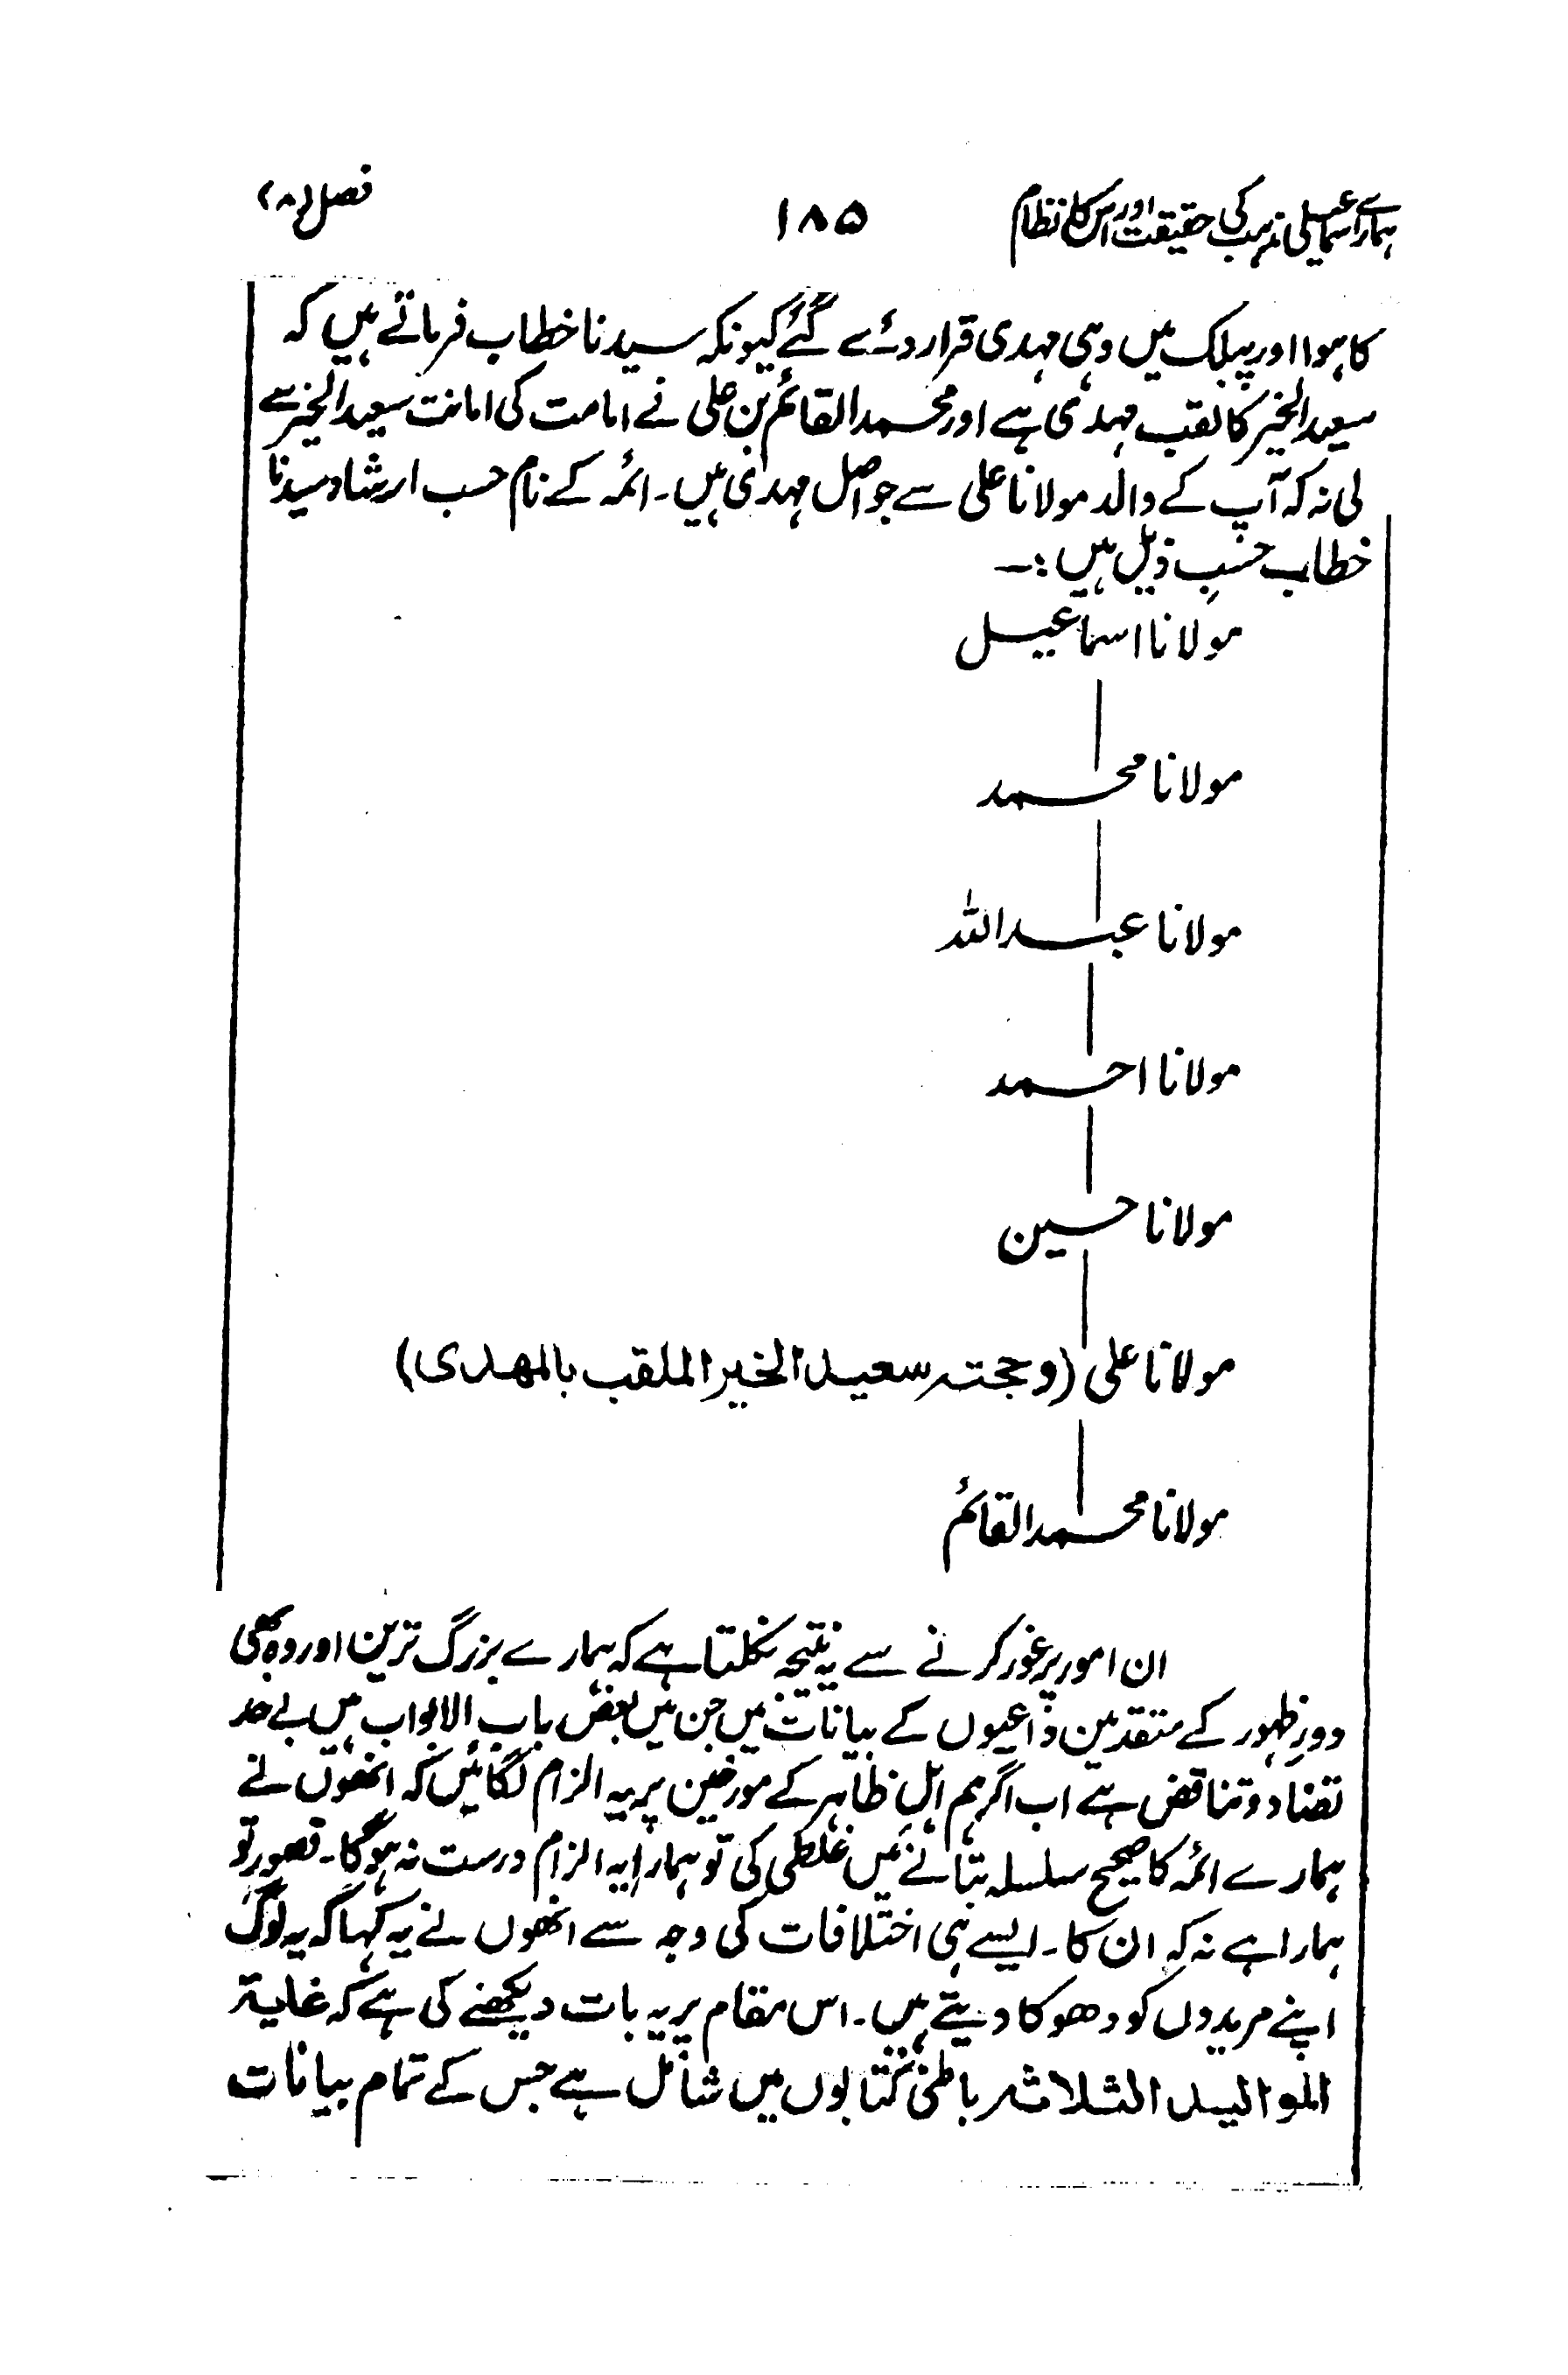 ہمارے اسماعیلی مذہب کی حقیقت اور اس کا نظام ۱۸۵ فصل (۸)
کا ہوا اور پبلک میں وہی مہدی قرار دئے گئے کیونکہ سیدنا خطاب فرماتے ہیں کہ
سعید الخیر کا لقب مہدی ہے اور محمد القائم بن علی نے امامت کی امانت سعید الخیر سے
لی نہ کہ آپ کے والد مولانا علی سے جو اصل مہدی ہیں۔ ائمہ کے نام حسب ارشاد سیدنا
خطاب حسبِ ذیل ہیں :۔
مولانا اسماعیل
مولانا محمد
مولانا عبداللہ
مولانا احمد
مولانا حسین
مولانا علی (وحجتہ سعید الخیر الملقب بالمھدی)
مولانا محمد القائم
ان امور پر غور کرنے سے یہ نتیجہ نکلتا ہے کہ ہمارے بزرگ ترین اور وہ بھی
دورِ ظہور کے متقدمین داعیوں کے بیانات میں جن میں بعض باب الابواب ہیں بے حد
تضاد و تناقض ہے اب اگر ہم اہلِ ظاہر کے مورخین پر یہ الزام لگائیں کہ انھوں نے
ہمارے ائمہ کا صحیح سلسلہ بتانے میں غلطی کی تو ہمارا یہ الزام درست نہ ہوگا۔ قصور تو
ہمارا ہے نہ کہ ان کا۔ ایسے ہی اختلافات کی وجہ سے انھوں نے یہ کہا کہ یہ لوگ
اپنے مریدوں کو دھوکا دیتے ہیں۔ اس مقام پر یہ بات دیکھنے کی ہے کہ غایۃ
الموالید الثلاثہ باطنی کتابوں میں شامل ہے جس کے تمام بیانات